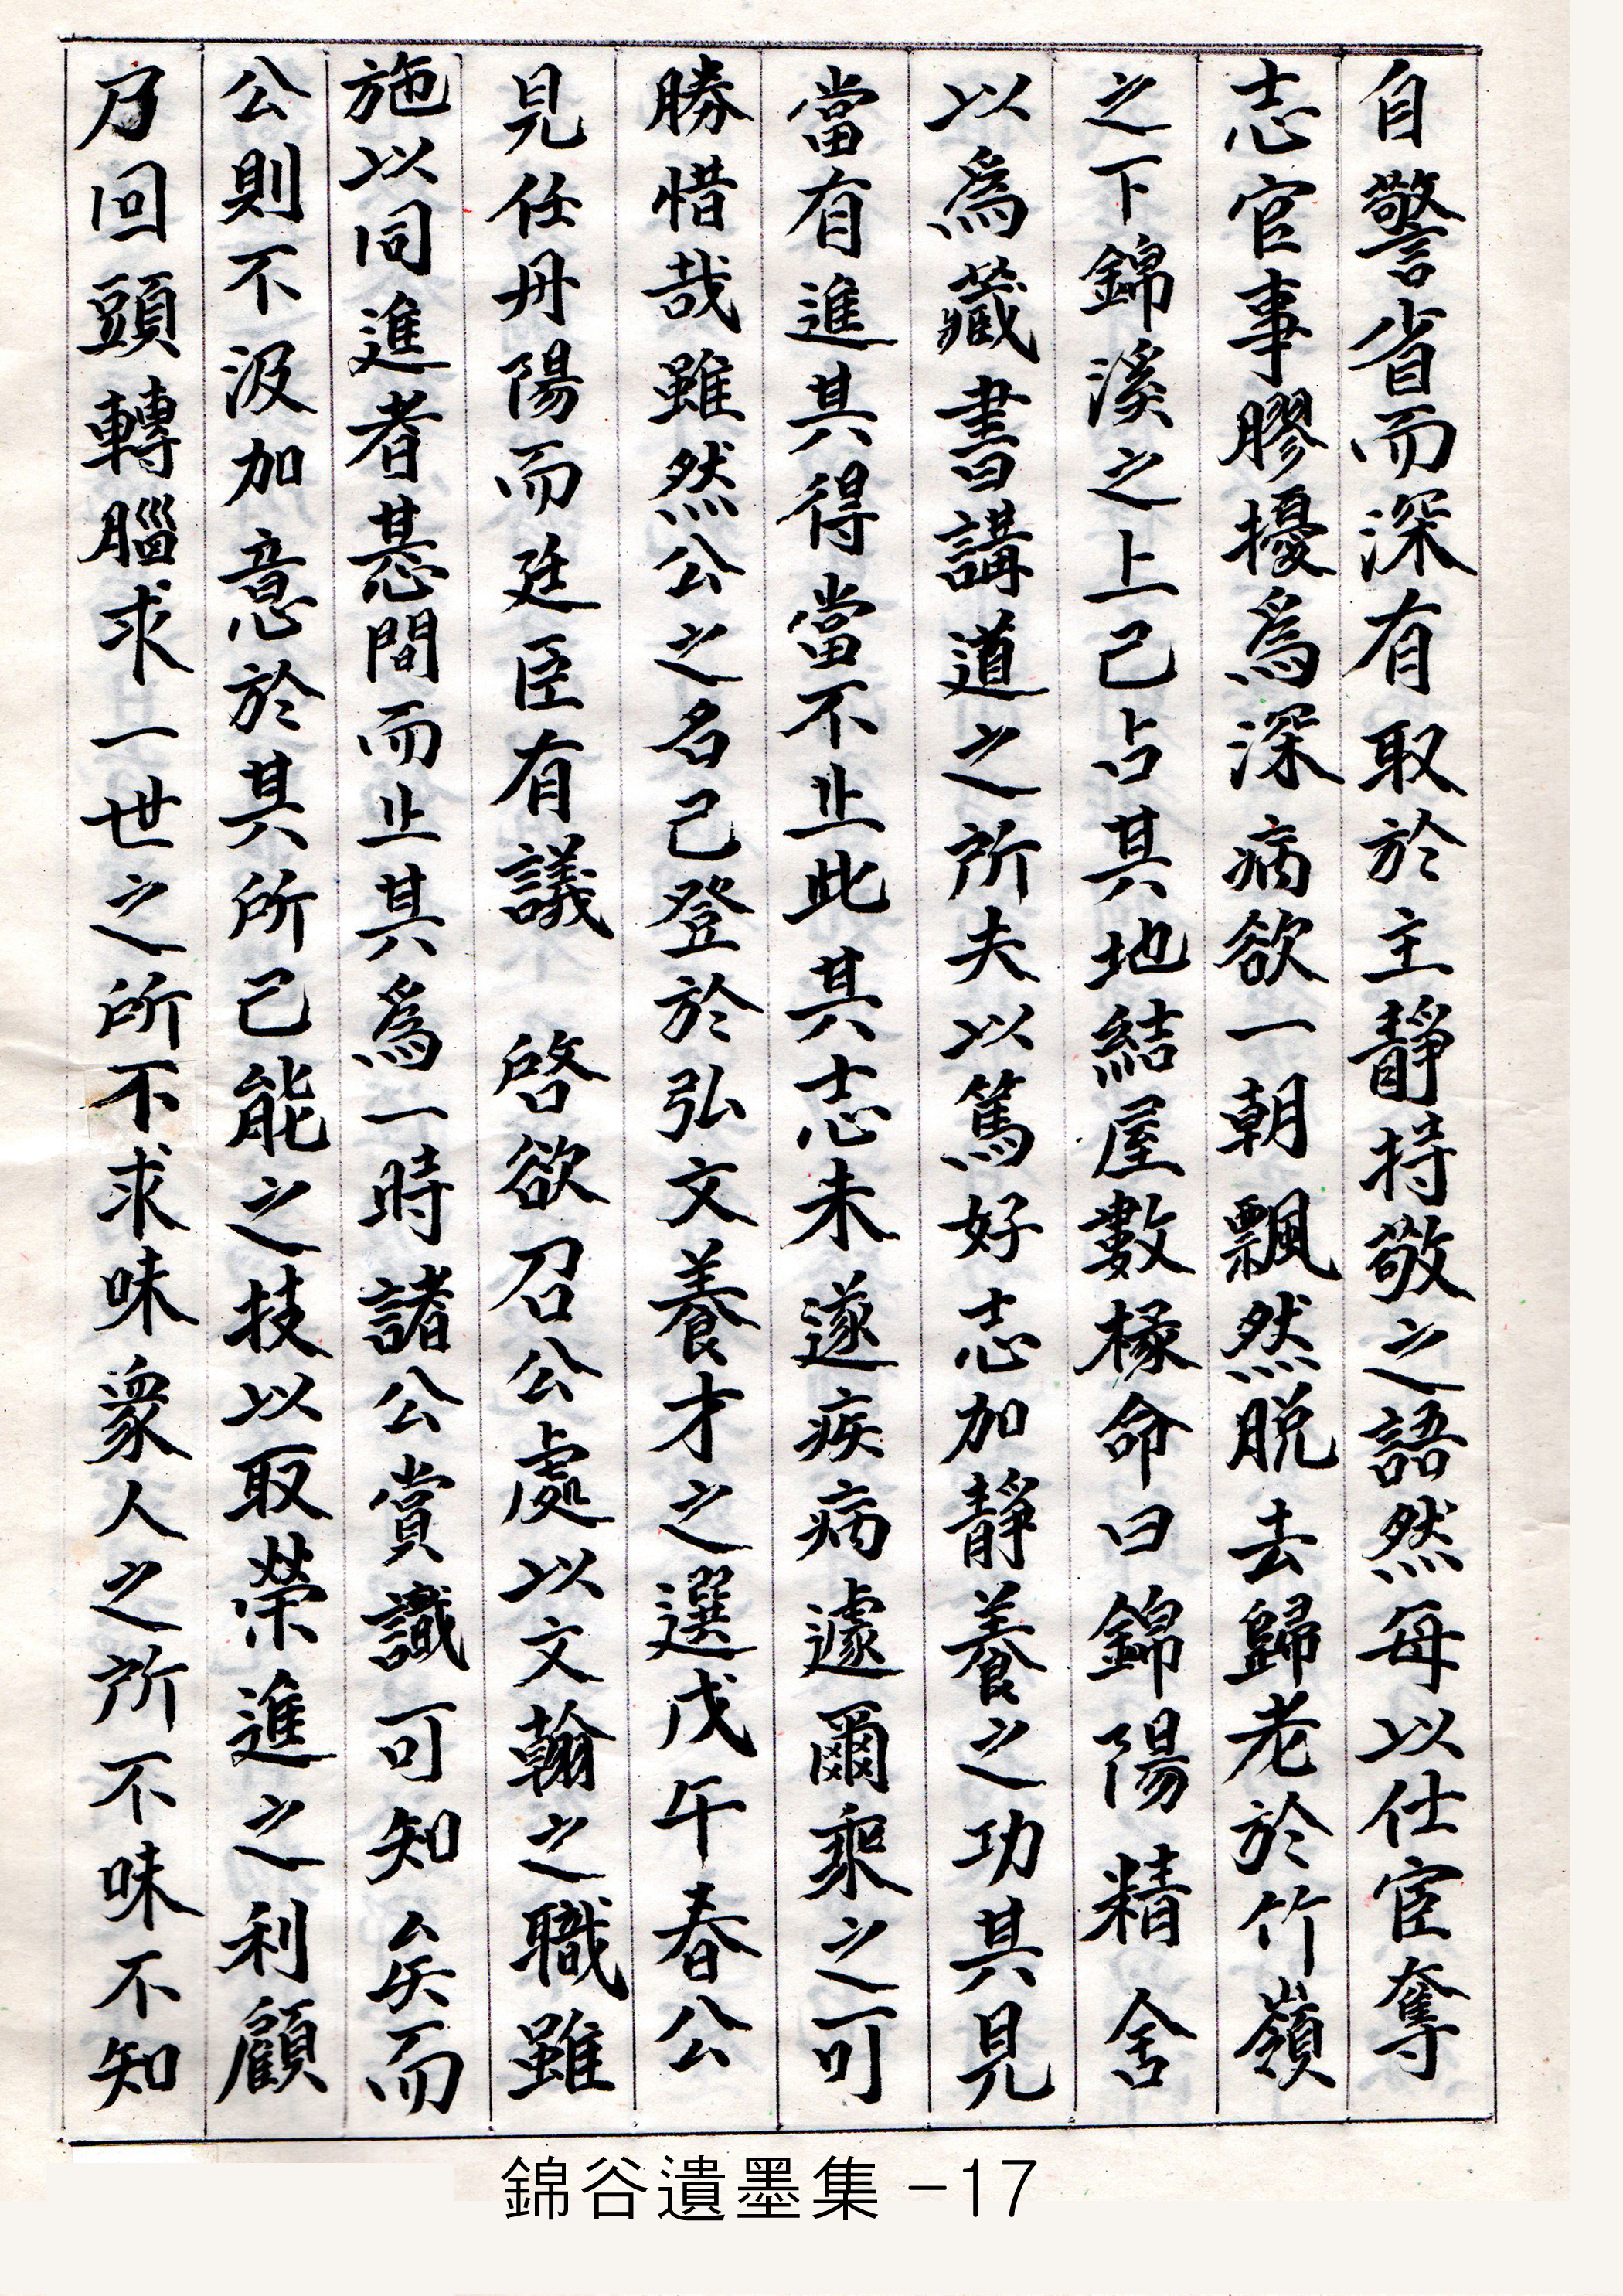 自警省而深有取於主靜持敬之語然每以仕宦奪
志官事膠擾爲深病欲一朝飄然脫去歸老於竹嶺
之下錦溪之上已占其地結屋數椽命曰錦陽精舍
以爲藏書講道之所夫以篤好志加靜養之功其見
當有進其得當不止此其志未遂疾病遽爾乘之可
勝惜哉雖然公之名已登於弘文養才之選戊午春公
見任丹陽而廷臣有議 啓欲召公處以文翰之職雖
施以同進者惎間而止其爲一時諸公賞識可知矣而
公則不汲加意於其所已能之技以取榮進之利顧
乃回頭轉腦求一世之所不求味衆人之所不味不知
錦谷遺墨集 -17